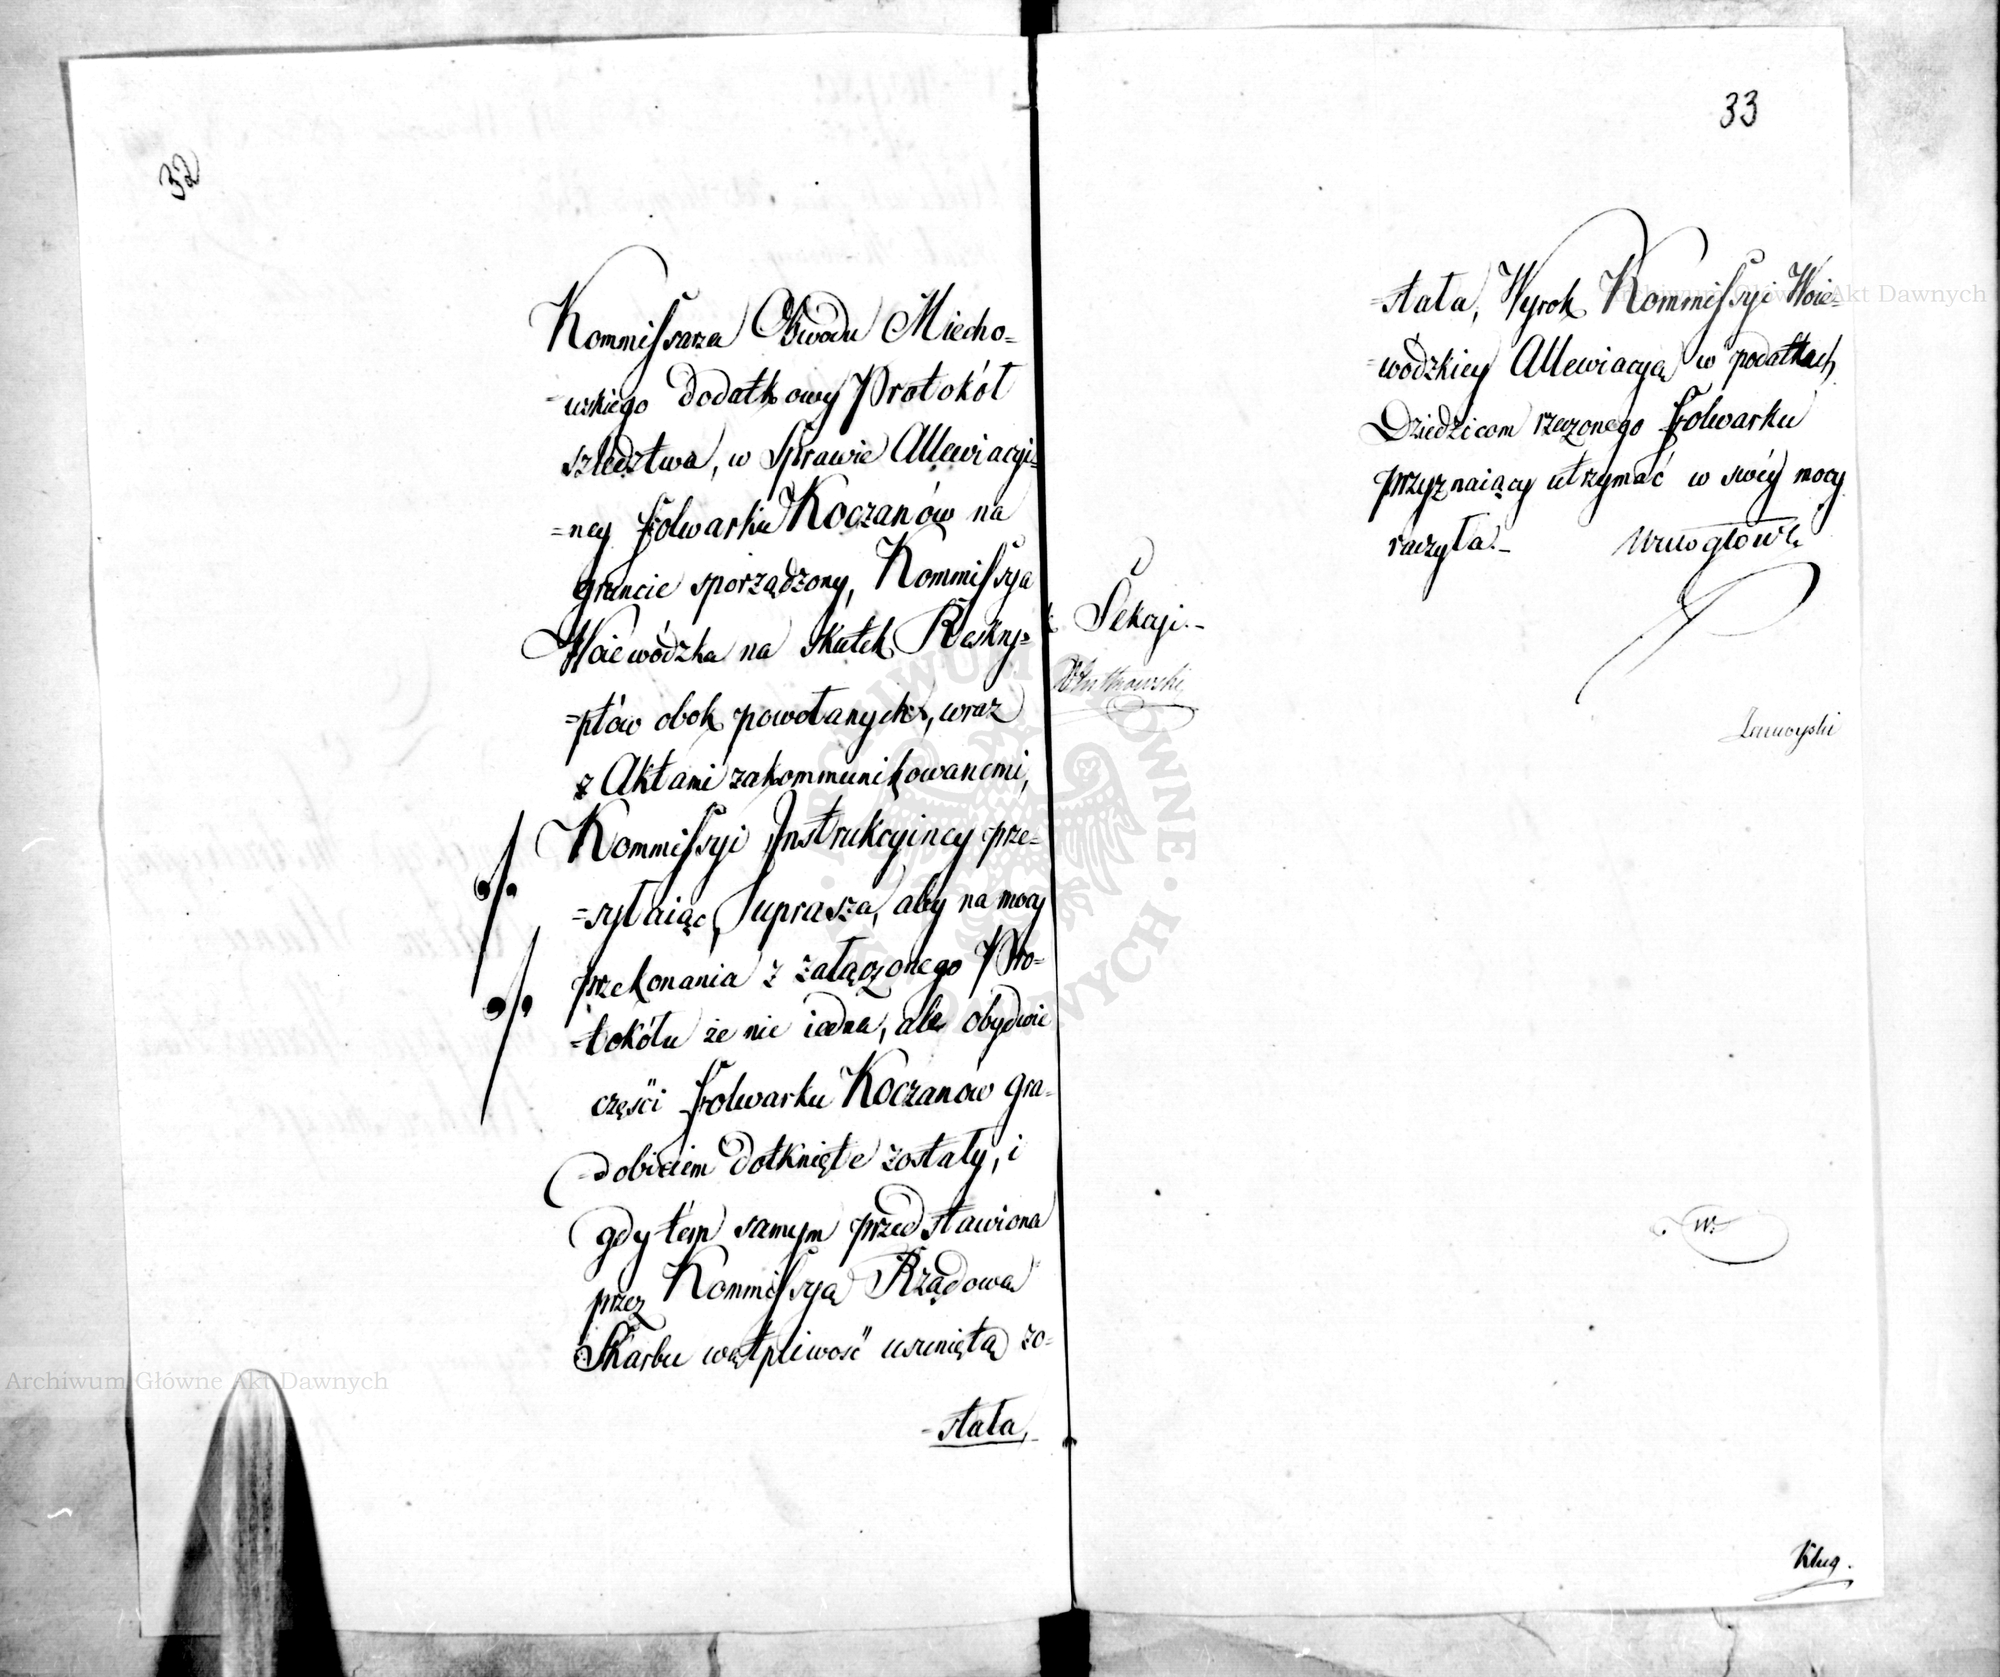 32
Kommissarza Obwodu Miecho=
=wskiego dodatkowy Protokół
szledztwa, w Sprawie Allewiacyi=
=ney folwarku Koczanów na
gruncie sporządzony, Kommissya
Woiewódzka na skutek Reskry=
=ptów obok powołanych, wraz
z Aktami zakommunikowanemi,
Kommissyi Instrukcyiney prze=
=syłaiąc, Suprasza, aby na mocy
przekonania z załączonego Pro=
=tokółu że nie iedna, ale obydwie
części folwarku Koczanów gra=
=dobiciem dotknięte zostały, i
gdy tem samym przedstawiona
przez Kommissyą Rządową
Skarbu wątpliwość usuniętą zo=
=stała,
33
=stała, Wyrok Kommissyi Woie=
=wódzkiey Allewiacyą w podatkach
Dziedzicom rzeczonego folwarku
przyznaiący utrzymać w swéy mocy
raczyła._
Sekcyi._
Zamoyski
Klug.
Archiwum Główne Akt Dawnych
Archiwum Główne Akt Dawnych
ARCHIWUM GŁÓWNE AKT DAWNYCH